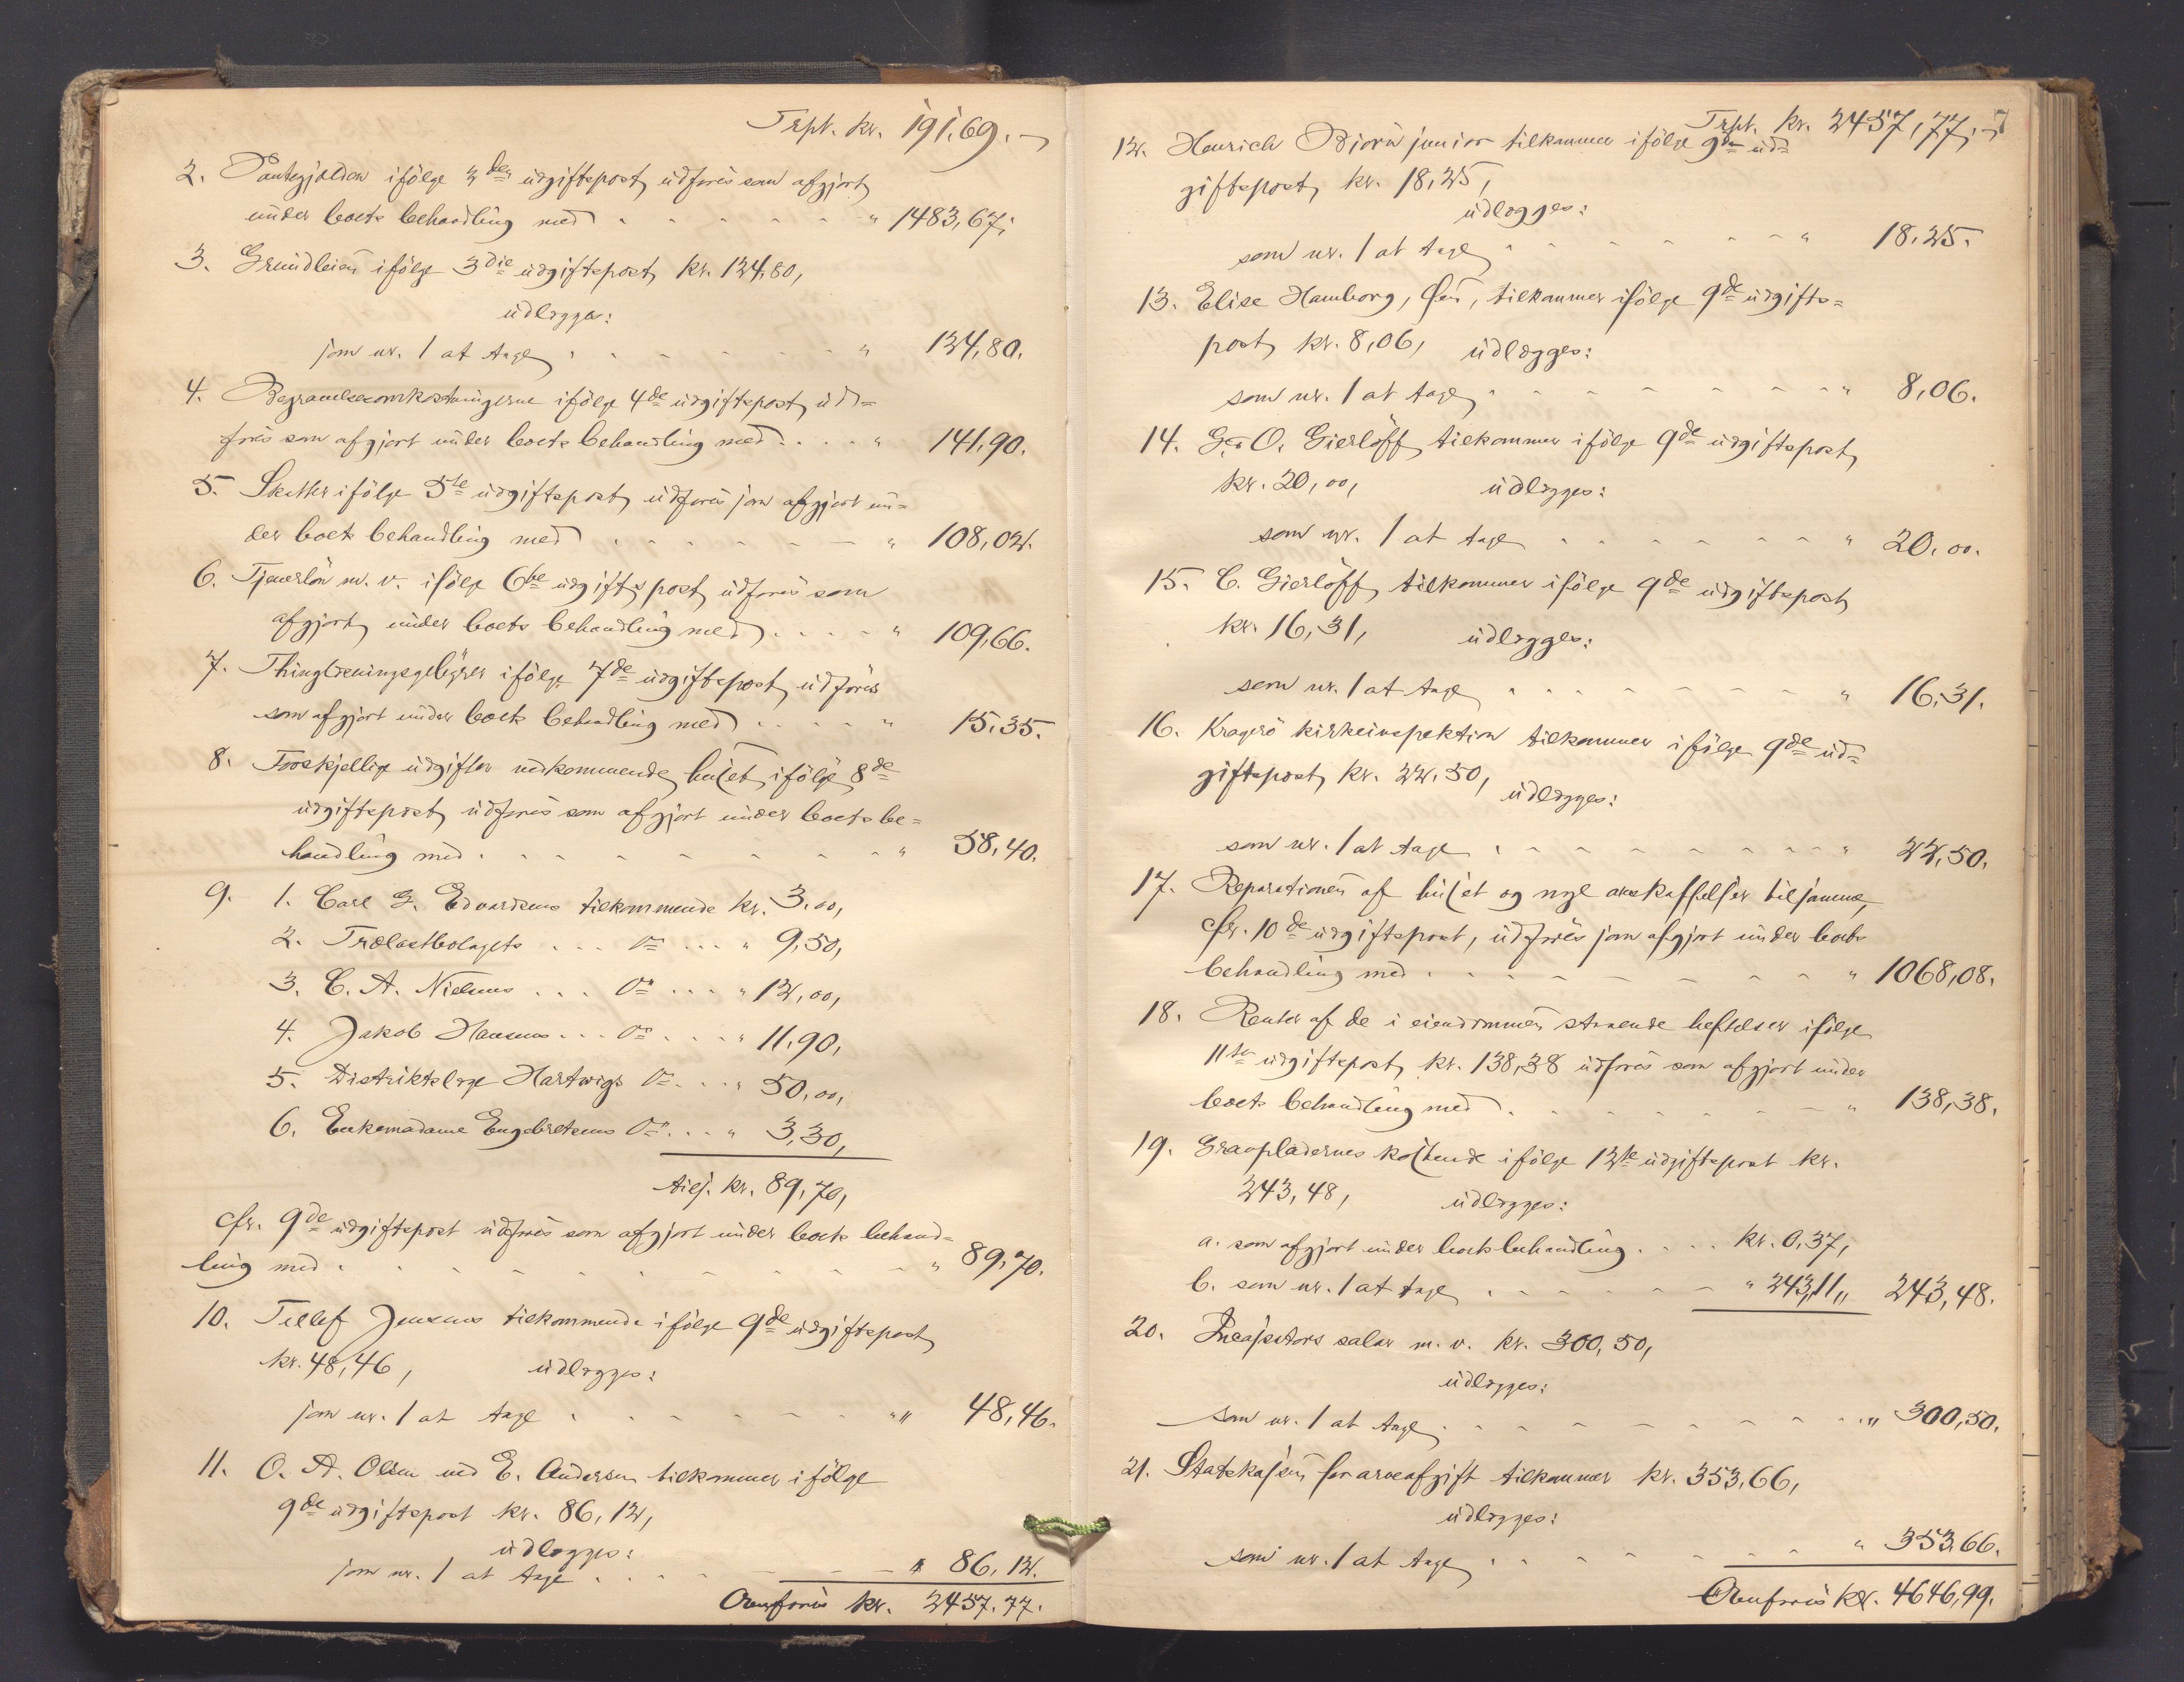 Trspt. kr. 191,69.
2. Pantegjælden ifölge 2den udgiftspost, udföres som afgjort
under boets behandling med . . . . . . " 1483,67.
3. Grundleien ifölge 3die udgiftspost, kr. 124,80,
udlægges:
som nr. 1 at tage . . . . . . " 124,80.
4. Begravelsesomkostningerne ifölge 4de udgiftspost, ud=
föres som afgjort under boets behandling med . . . . " 141,90.
5. Skatter ifölge 5te udgiftspost, udföres som afgjort un=
der boets behandling med . . . . . . " 108,02.
6. Tjenerlön m. v. ifölge 6te udgiftspost, udföres som
afgjort, under boets behandling med . . . . " 109,66.
7. Thinglæsningsgebyrer ifölge 7de udgiftspost, udföres
som afgjort under boets behandling med . . . . . " 15,35.
8. Forskjellige udgifter vedkommende huset, ifölge 8de
udgiftspost, udföres som afgjort under boets be=
handling med . . . . . . . . " 58,40.
9. 1. Carl G. Edvardsens tilkommende kr. 3,00,
2. Trælastbolagets . . . do . . . " 9,50,
3. C. A. Nielsens . . . do . . . " 12,00,
4. Jakob Hansens . . . do . . . " 11,90,
5. Distriktslæge Hartwigs do . . . " 50,00,
6. Enkemadame Engebretsens do . . . " 3,30,
tils. kr. 89,70,
cfr. 9de udgiftspost udföres som afgjort under boets behand=
ling med . . . . . . . . . . " 89,70.
10. Tellef Jensens tilkommende ifölge 9de udgiftspost,
kr. 48,46, udlægges:
som nr. 1 at tage . . . . . . " 48,46.
11. O. A. Olsen ved E. Andersen tilkommer ifölge
9de udgiftspost kr. 86,12,
udlægges:
som nr. 1 at tage . . . . . . " 86,12.
Overföres kr. 2457.77.
Trspt. kr. 2457,77. 7
12. Henrich Biorn junior tilkommer ifölge 9de ud=
giftspost, kr. 18,25,
udlægges:
som nr. 1 at tage . . . . . . . " 18,25.
13. Elise Hamborg, tilkommer ifölge 9de udgifts=
post, kr. 8,06, udlægges:
som nr. 1 at tage . . . . . . . . " 8,06.
14. G. & O. Gierlöff, tilkommer ifölge 9de udgiftspost,
kr. 20,00, udlægges:
som nr. 1 at tage . . . . . . . " 20,00.
15. C. Gierlöff, tilkommer ifölge 9de udgiftspost,
kr. 16,31, udlægges:
som nr. 1 at tage . . . . . . . . " 16,31.
16. Kragerö kirkeinspektion tilkommer ifölge 9de ud=
giftspost, kr. 22,50, udlægges:
som nr. 1 at tage . . . . . . . . . " 22,50.
17. Reparationen af huset og nye anskaffelser til samme,
cfr. 10de udgiftspost, udföres som afgjort under boets
behandling med . . . . . . . . " 1068,08.
18. Renter af de i eiendommen staaende heftelser ifölge
11te udgiftspost, kr. 138,38 udföres som afgjort under
boets behandling med . . . . . . . . " 138,38.
19. Gravpladernes kostende ifölge 12te udgiftspost kr.
243,48, udlægges:
a. som afgjort under boets behandling . . . . kr. 0,37,
b. som nr. 1 at tage . . . . . . " 243,11,, 243,48.
20. Incassators salær m. v. kr. 300,50,
udlægges:
som nr. 1 at tage . . . . . . . . . . " 300,50.
21. Statskassen for arveafgift tilkommer kr. 353,66,
udlægges:
som nr. 1 at tage . . . . . . . . " 353.66.
Overföres kr. 4646,99.